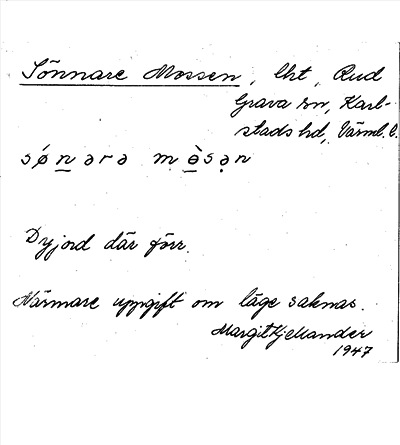 Sönnare Mossen, lht, Rud
Grava sn, Karl-
stads hd, Värml. l.
sǿn̲ərə mò̲sə̣n
Dyjord där förr.
Närmare uppgift om läge saknas.
Margit Kjellander
1947